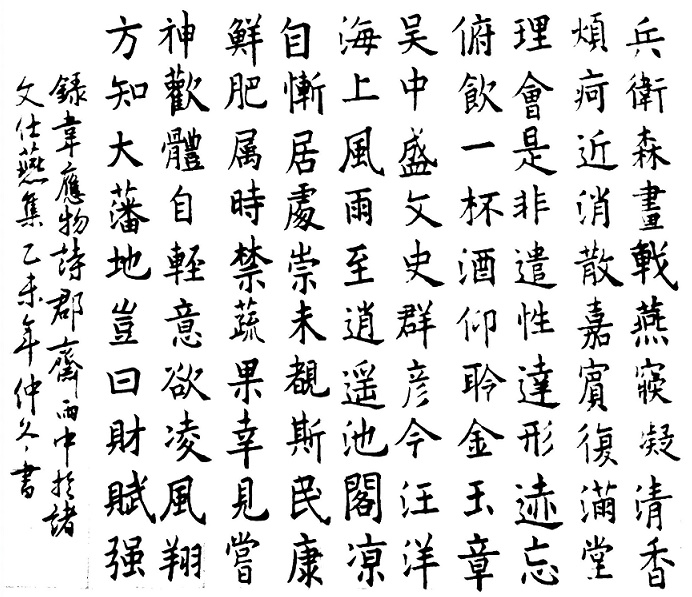 兵衛森畫戟燕寢凝清香
煩疴近消散嘉賓復滿堂
理會是非遣性達形迹忘
俯飲一杯酒仰聆金玉章
吴中盛文史群彦今汪洋
海上風雨至逍遥池閣凉
自慚居處崇未覩斯民康
鮮肥属時禁蔬果幸見嘗
神歡體自輕意欲凌風翔
方知大藩地豈曰財賦强
録韋應物詩郡齋雨中扵諸
文仕燕集乙未年仲冬書